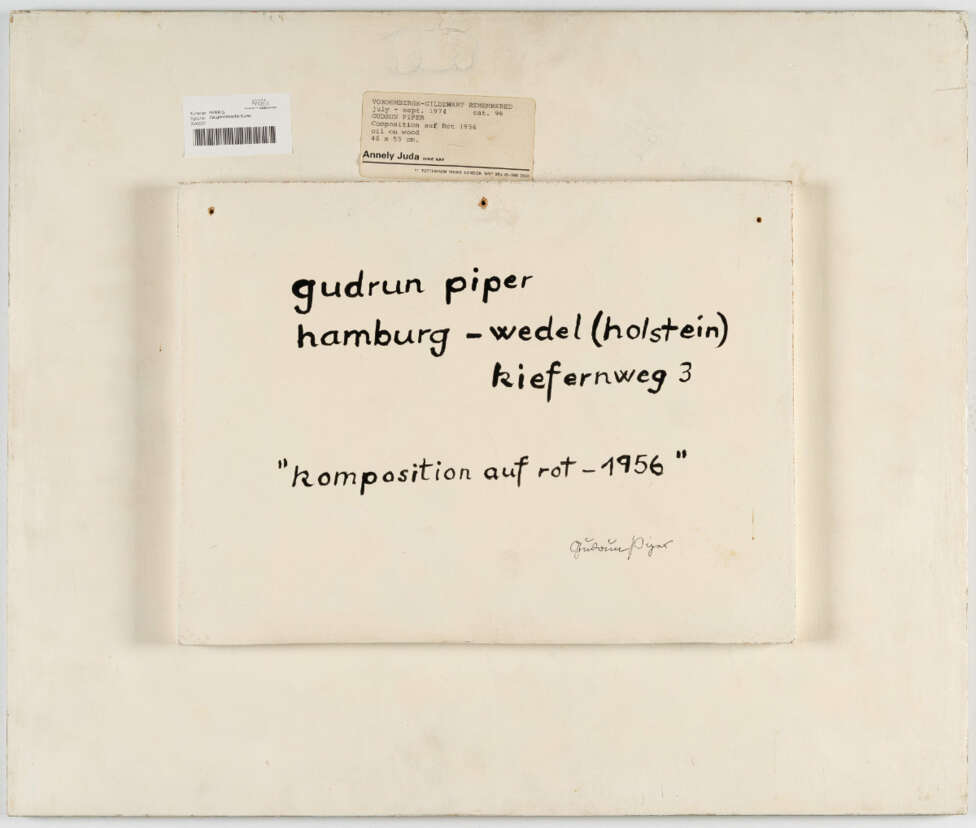 VORDEMBERGE-GILDEWART REMEMBERED
july - sept. 1974 cat. 96
GUDRUN PIPER
Composition auf Rot 1956
oil on wood
Annely Juda
gudrun piper
hamburg - wedel (holstein)
kiefernweg 3
"komposition auf rot - 1956"
Gudrun Piper